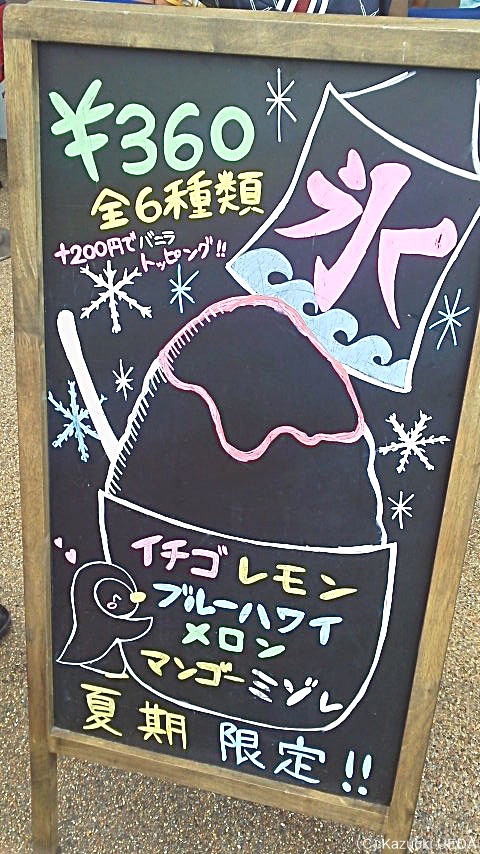 ¥360
氷
全6種類
+200円でバニラ
トッピング!!
イチゴ レモン
ブルーハワイ
メロン
マンゴー ミゾレ
夏期 限定!!
(C) Kazuoki UEDA